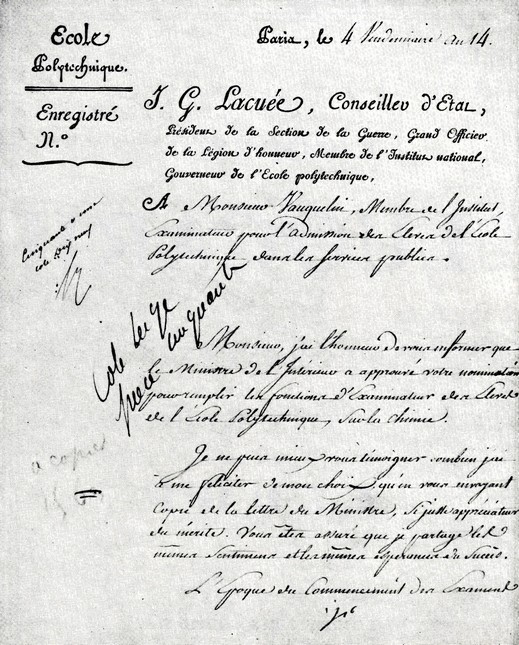 Ecole
Polytechnique.
Enregistré
N.°
Paris, le 4 Vendémiaire an 14.
J. G. Lacuée, Conseiller d'Etat,
Président de la Section de la Guerre, Grand Officier
de la Légion d'honneur, Membre de l'Institut national,
Gouverneur de l'Ecole polytechnique,
A Monsieur Vauquelin, Membre de l'Institut,
Examinateur pour l'admission des Eleves de l'Ecole
Polytechnique dans les services publics.
Cinquante
cote
Cote
piece cinquante
Monsieur, j'ai l'honneur de vous informer que
le Ministre de l'Intérieur a approuvé votre nomination
pour remplir les fonctions d'Examinateur des Eleves
de l'Ecole Polytechnique, sur la chimie.
a copier
Je ne puis mieux vous témoigner combien j'ai
à me féliciter de mon choix, qu'en vous envoyant
Copie de la lettre du Ministre, si juste appréciateur
du mérite. Vous êtes assuré que je partage les
mêmes sentimens et les mêmes espérances du succès.
L'Epoque du Commencement des Examens